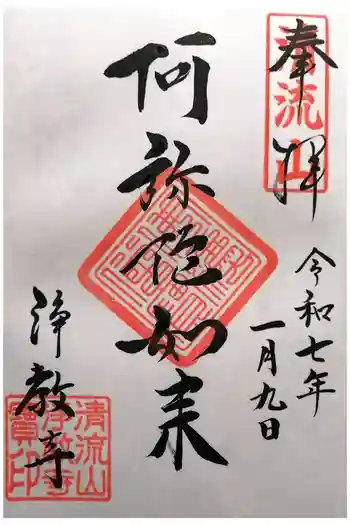 奉拝
清流山
令和七年
一月九日
阿弥陀如来
浄教寺
清流山
浄教寺
寶印